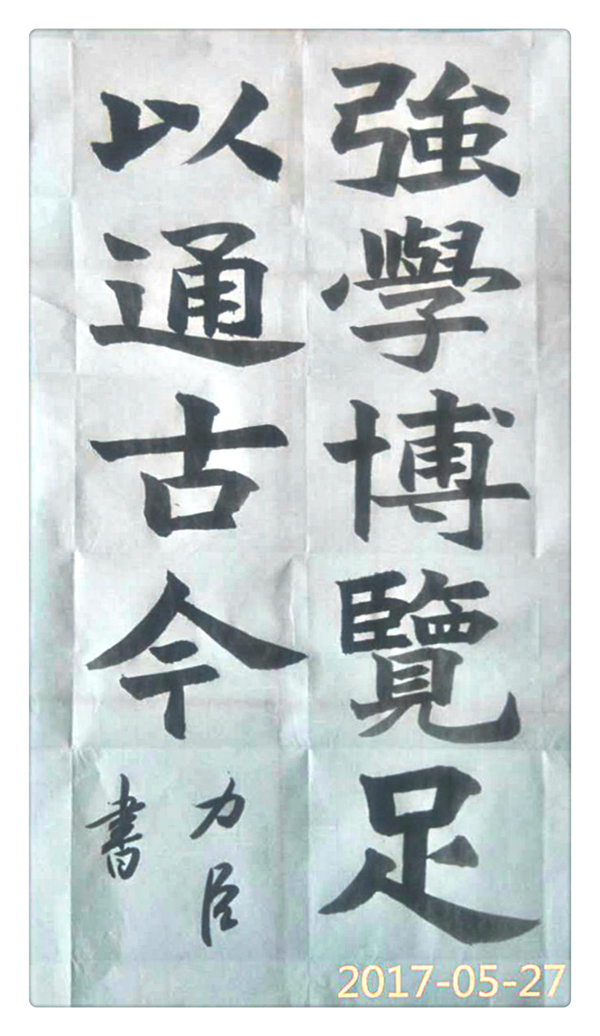 強學博覽足
以通古今
力臣
書
2017-05-27